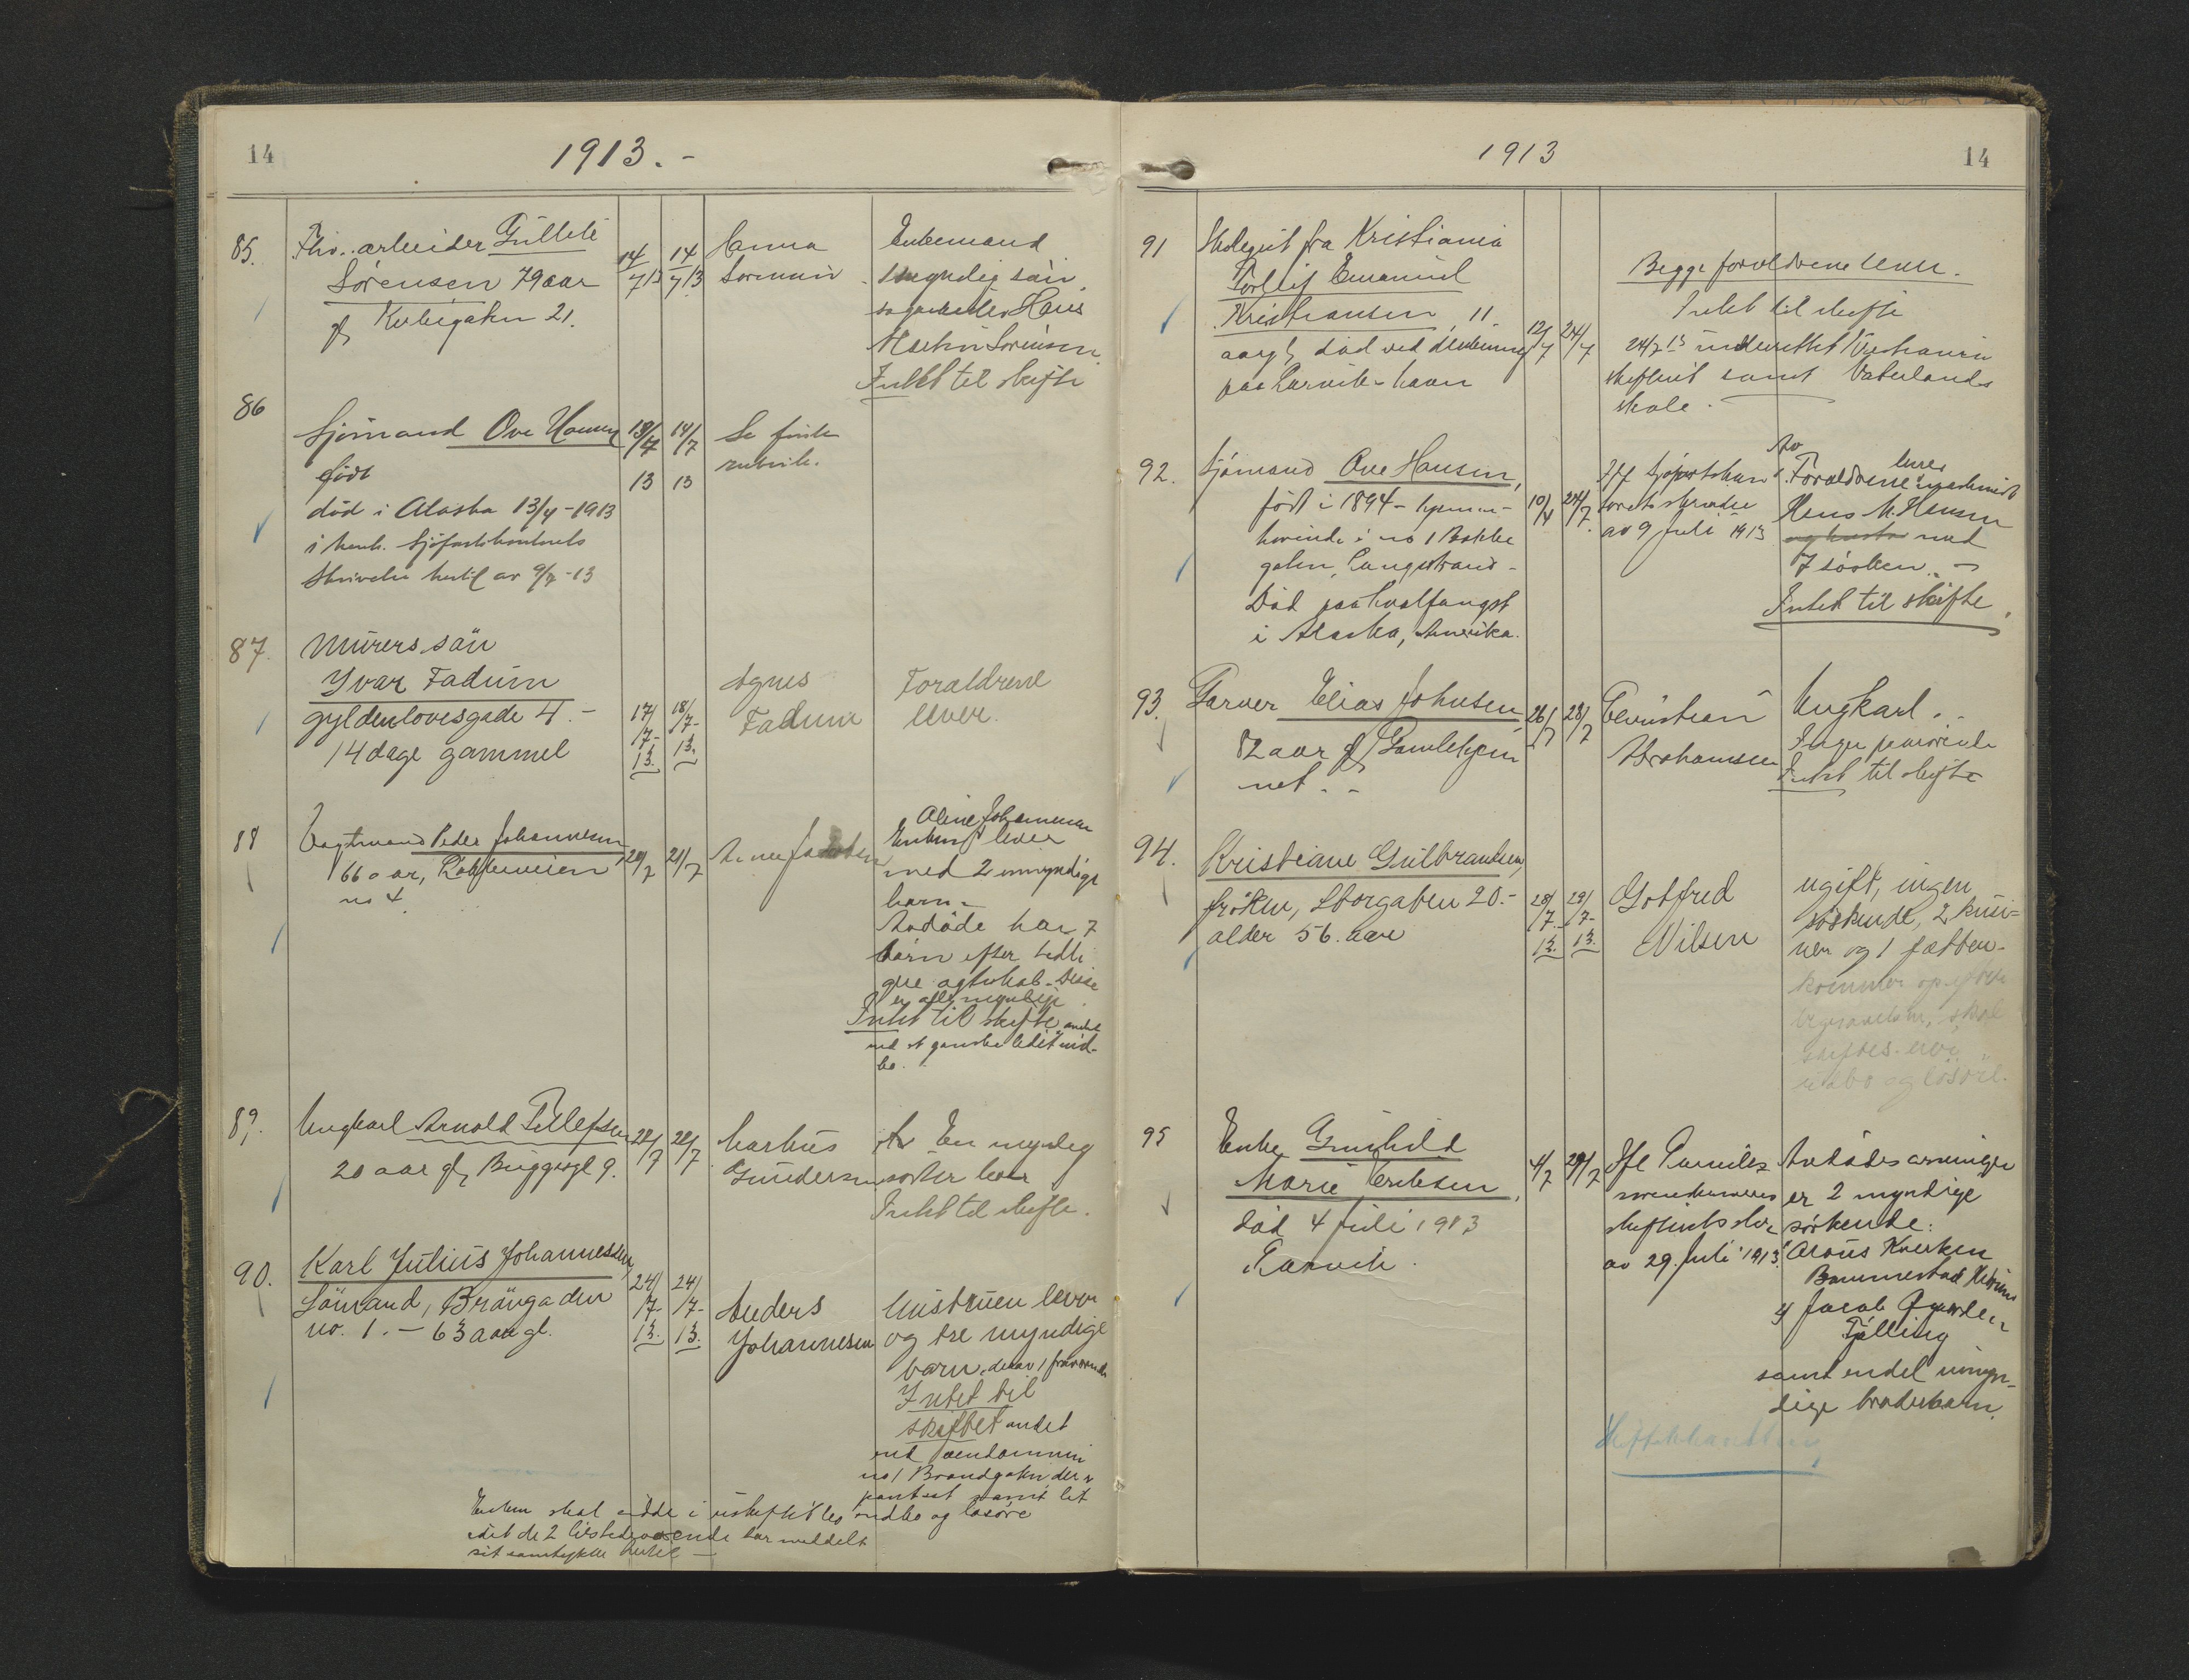 14
1913. -
85.
Fhv. arbeider Gulleik
Sørensen 79 aar
gl. Kubegaten 21.
14/7 13
14/7 13
Anna
Sørensen
Enkemand
1 myndig søn
sagarbeider Hans
Martin Sørensen.
Intet til skifte
86
Sjømand Ove Hansen
født
død i Alaska 13/4 - 1913
i henh. Sjøfartskontorets
Skrivelse hertil av 9/7 - 13
13/4 13
14/7 13
Se
rubrik.
87.
Murers søn
Yvar Fadum
Gyldenlovesgade 4. -
14 dage gammel
17/7 - 13.
18/7 - 13.
Agnes
Fadum
Foraldrene
lever.
88
Vagtmand Peder Johannesen,
66 aar,
no 4
20/7
21/7
Anne Jakobsen
Aline Johannesen
Enken lever
med 2 umyndige
barn -
Avdøde har 7
børn efter tidli
gere egteskab. Disse
er alle myndige.
Intet til skifte andet
end et ganske lidet ind-
bo.
89.
Ungkarl Arnold Tellefsen
20 aar gl, Bryggegt 9.
22/7
22/7
Markus
Gundersen
En myndig
søster lever
Intet til skifte.
90.
Karl Julius Johannessen,
Sömand, Brångaden
no. 1. - 63 aar gl.
24/7 - 13.
24/7 - 13.
Anders
Johannesen
Hustruen lever
og tre myndige
barn, derav 1 fraværende
Intet til
skiftet andet
end eiendommen
no 1 Brandgaten der er
pantsat samt lit
indbo og løsøre
Enken skal sidde i uskiftet bo
idet de 2 tilstedeværende har meddelt
sit samtykke hertil -
1913
14
91
Skolegut fra Kristiania
Torleif Emanuel
Kristiansen, 11
aar gl, død ved drukning
paa Larvik havn
12/7
24/7
Begge forældrene lever.
Intet til skifte
24/7 13 underrettet Kristiania
skifteret samt Vaterlands
skole.
92.
Sjømand Ove Hansen,
født i 1894 - hjemme-
hørende i no 1 Bakke
gaten, Langestrand -
Død paa hvalfangst
i Alaska, Amerika.
10/4
24/7.
Ifl Sjøfartskon
torets skrivelse
av 9 Juli 1913
Av
Forældrene lever
Hans M. Hansen
med
7 søsken. -
Intet til skifte.
93.
Farver Elias Johnsen
82 aar gl, Gamlehjem
met. -
26/7
28/7
Christian
Abrahamsen
Ungkarl. -
Ingen
Intet til skifte
94.
Kristiane Gulbrandsen,
frøken, Storgaten 20. -
alder 56. aar
28/7 - 13.
29/7 - 13.
Gotfred
Nilsen
ugift, ingen
söskende, 2 kusi=
ner og 1 fætter -
kommer op efter
begravelsen, skal
skiftes. eier
indbo og lösöre.
95
Enke Gunhild
Marie Eriksen,
død 4 Juli 1913
Larvik.
4/7
29/7
Ifl
sorenskriveres
skifterets skr.
av 29. Juli 1913.
Avdødes arvinger
er 2 myndige
søskende:
Kverken
Bommestad Hedrum
og Jacob
Tjølling
samt endel umyn-
dige broderbarn.